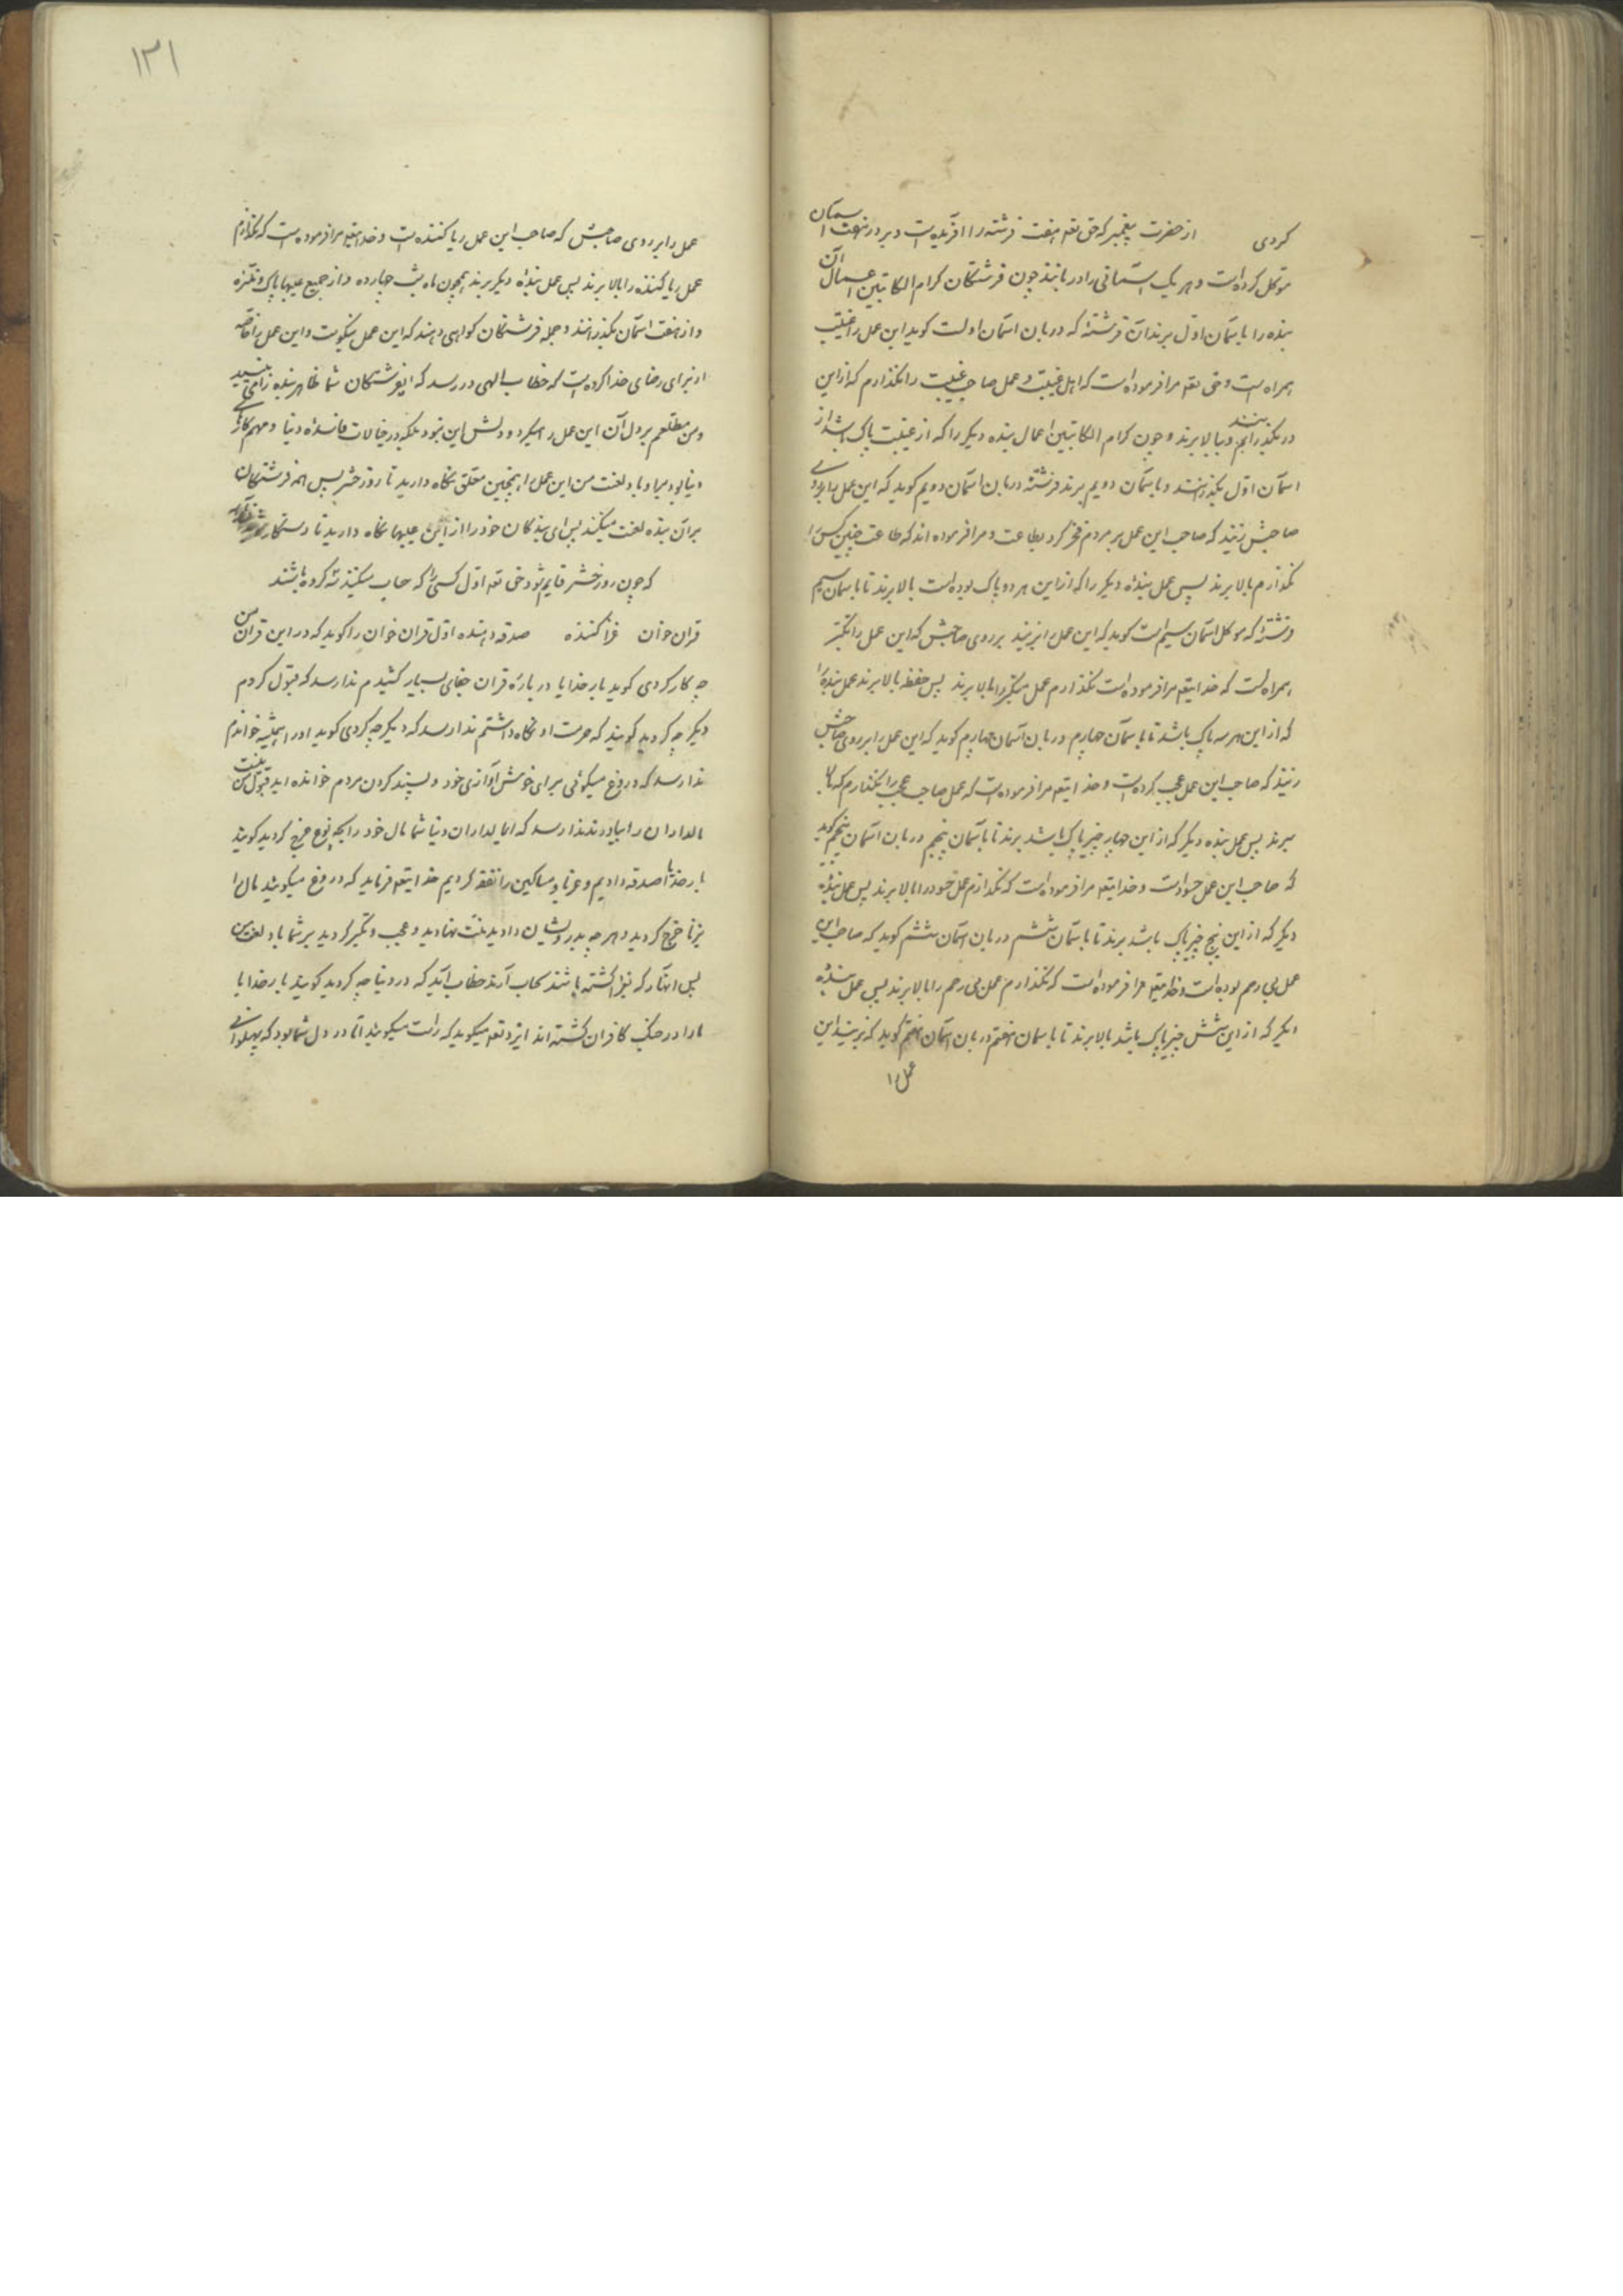 کردی از حضرت پیغمبر که حق تعه هفت فرشته را آفریده است و بر در هفت آسمان
موکل کرده است و هر یک آسمانی را دربانند چون فرشتگان کرام الکاتبین اعمال آن
بنده را بآسمان اول برند آن فرشته که دربان آسمان اولست کوید این عمل را غیبت
همراه است و حق تعه مرا فرموده است که اهل غیبت و عمل صاحب غیبت را نکذارم که ازین
در بکذرانم و ببالا برند و چون کرام الکاتبین اعمال بنده دیکر را که از غیبت پاک باشد از
آسمان اول بکذرانند و بآسمان دویم برند فرشته دربان آسمان دویم کوید که این عمل را بر روی
صاحبش زنید که صاحب این عمل بر مردم فخر کرد بطاعت و مرا فرموده اند که طاعت چنین کس را
نکذارم بالا برند پس عمل بنده دیکر را که ازین هر دو پاک بوده است بالا برند تا بآسمان سیم
فرشته که موکل آسمان سیم است کوید که این عمل را بزنید بر روی صاحبش که این عمل را تکبر
همراه است که خدایتعه مرا فرموده است نکذارم عمل متکبر را بالا برند پس حفظه بالا برند عمل بنده را
که از این هر سه پاک باشد تا بآسمان چهارم دربان آسمان چهارم کوید که این عمل را بر روی صاحبش
زنید که صاحب این عمل عجب کرده است و خدایتعه مرا فرموده است که عمل صاحب عجب را نکذارم که بالا
برند پس عمل بنده دیکر که از این چهار چیز پاک باشد برند تا بآسمان پنجم دربان آسمان پنجم کوید
که صاحب این عمل حسود است و خدایتعه مرا فرموده است که نکذارم عمل حسود را بالا برند پس عمل بنده
دیکر که از این پنج چیز پاک باشد برند تا بآسمان ششم دربان آسمان ششم کوید که صاحب این
عمل بی رحم بوده است و خدایتعه مرا فرموده است که نکذارم عمل بی رحم را بالا برند پس عمل بنده
دیکر که از این شش چیز پاک باشد بالا برند تا بآسمان هفتم دربان آسمان هفتم کوید که بزنید این
عمل را
۱۲۱
عمل را بر روی صاحبش که صاحب این عمل ریا کننده است و خدایتعه مرا فرموده است که نکذارم
عمل ریا کننده را بالا برند پس عمل بنده دیکر برند همچون ماه شب چهارده و از جمیع عیبها پاک و منزه
و از هفت آسمان بکذرانند و جمله فرشتکان کواهی دهند که این عمل نیکوست و این عمل را خاصه
از برای رضای خدا کرده است که خطاب الهی در رسد که ای فرشتکان شما ظاهر بنده را می بینید
و من مطلعم بر دل آن این عمل را میکرد و دلش این نبود بلکه در خیالات فاسده دنیا و مهم کارهای
دنیا بود مر او باد لعنت من این عمل را همچنین معلق نکاه دارید تا روز حشر پس همه فرشتکان
بر آن بنده لعنت میکنند پس ای بندکان خود را از این عیبها نکاه دارید تا رستکار شوید
که چون روز حشر قایم شود حق تعه اول کسی را که حساب میکند سه کروه باشند
قرآن خوان غزا کننده صدقه دهنده اول قرآن خوان را کوید که در این قرآن من
چه کار کردی کوید بار خدایا در باره قرآن جفای بسیار کشیدم ندا رسد که قبول کردم
دیکر چه کردید کویند که حرمت او نکاه داشتم ندا رسد که دیکر چه کردی کوید او را همیشه خواندم
ندا رسد که دروغ میکوئی برای خوش آوازی خود و پسند کردن مردم خوانده اید قبول من نیست
مالداران را بیاورند ندا رسد که ای مالداران دنیا شما مال خود را بچه نوع خرج کردید کویند
بار خدایا صدقه دادیم و غربا و مساکین را نفقه کردیم خدایتعه فرماید که دروغ میکوئید مال را
بزنا خرج کردید و هر چه بدرویشان دادید منت نهادید و عجب و تکبر کردید بر شما باد لعنت من
پس آنها را که بغزا کشته باشند بحساب آرند خطاب آید که در دنیا چه کردید کویند بار خدایا
ما را در جنک کافران کشته اند ایزد تعه میکوید که راست میکوئید اما در دل شما بود که پهلوانی